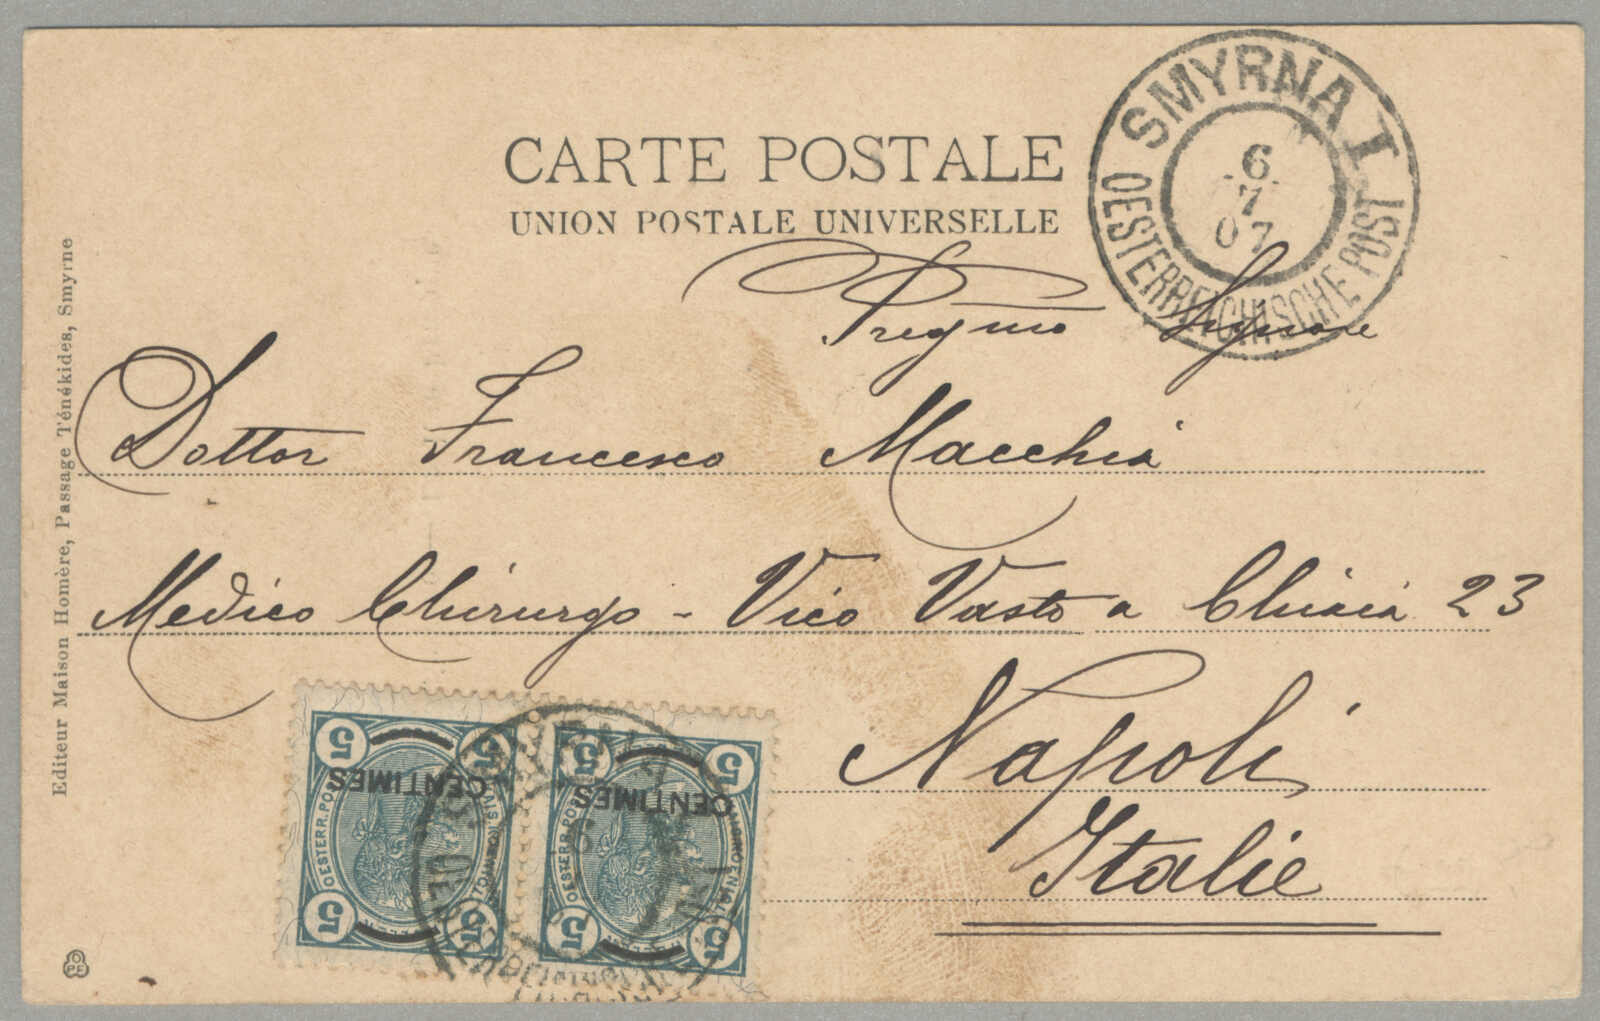 CARTE POSTALE
UNION POSTALE UNIVERSELLE
SMYRNA I
6
7
07
OESTERREICHISCHE POST
Pregmo Signore
Dottor Francesco Macchia
Medico Chirurgo - Vico Vasto a Chiaia 23
Napoli
Italie
Editeur Maison Homère, Passage Ténékides, Smyrne
5 5
CENTIMES
OESTERR.POST
5 5
5 5
CENTIMES
OESTERR.POST
5 5
OPF